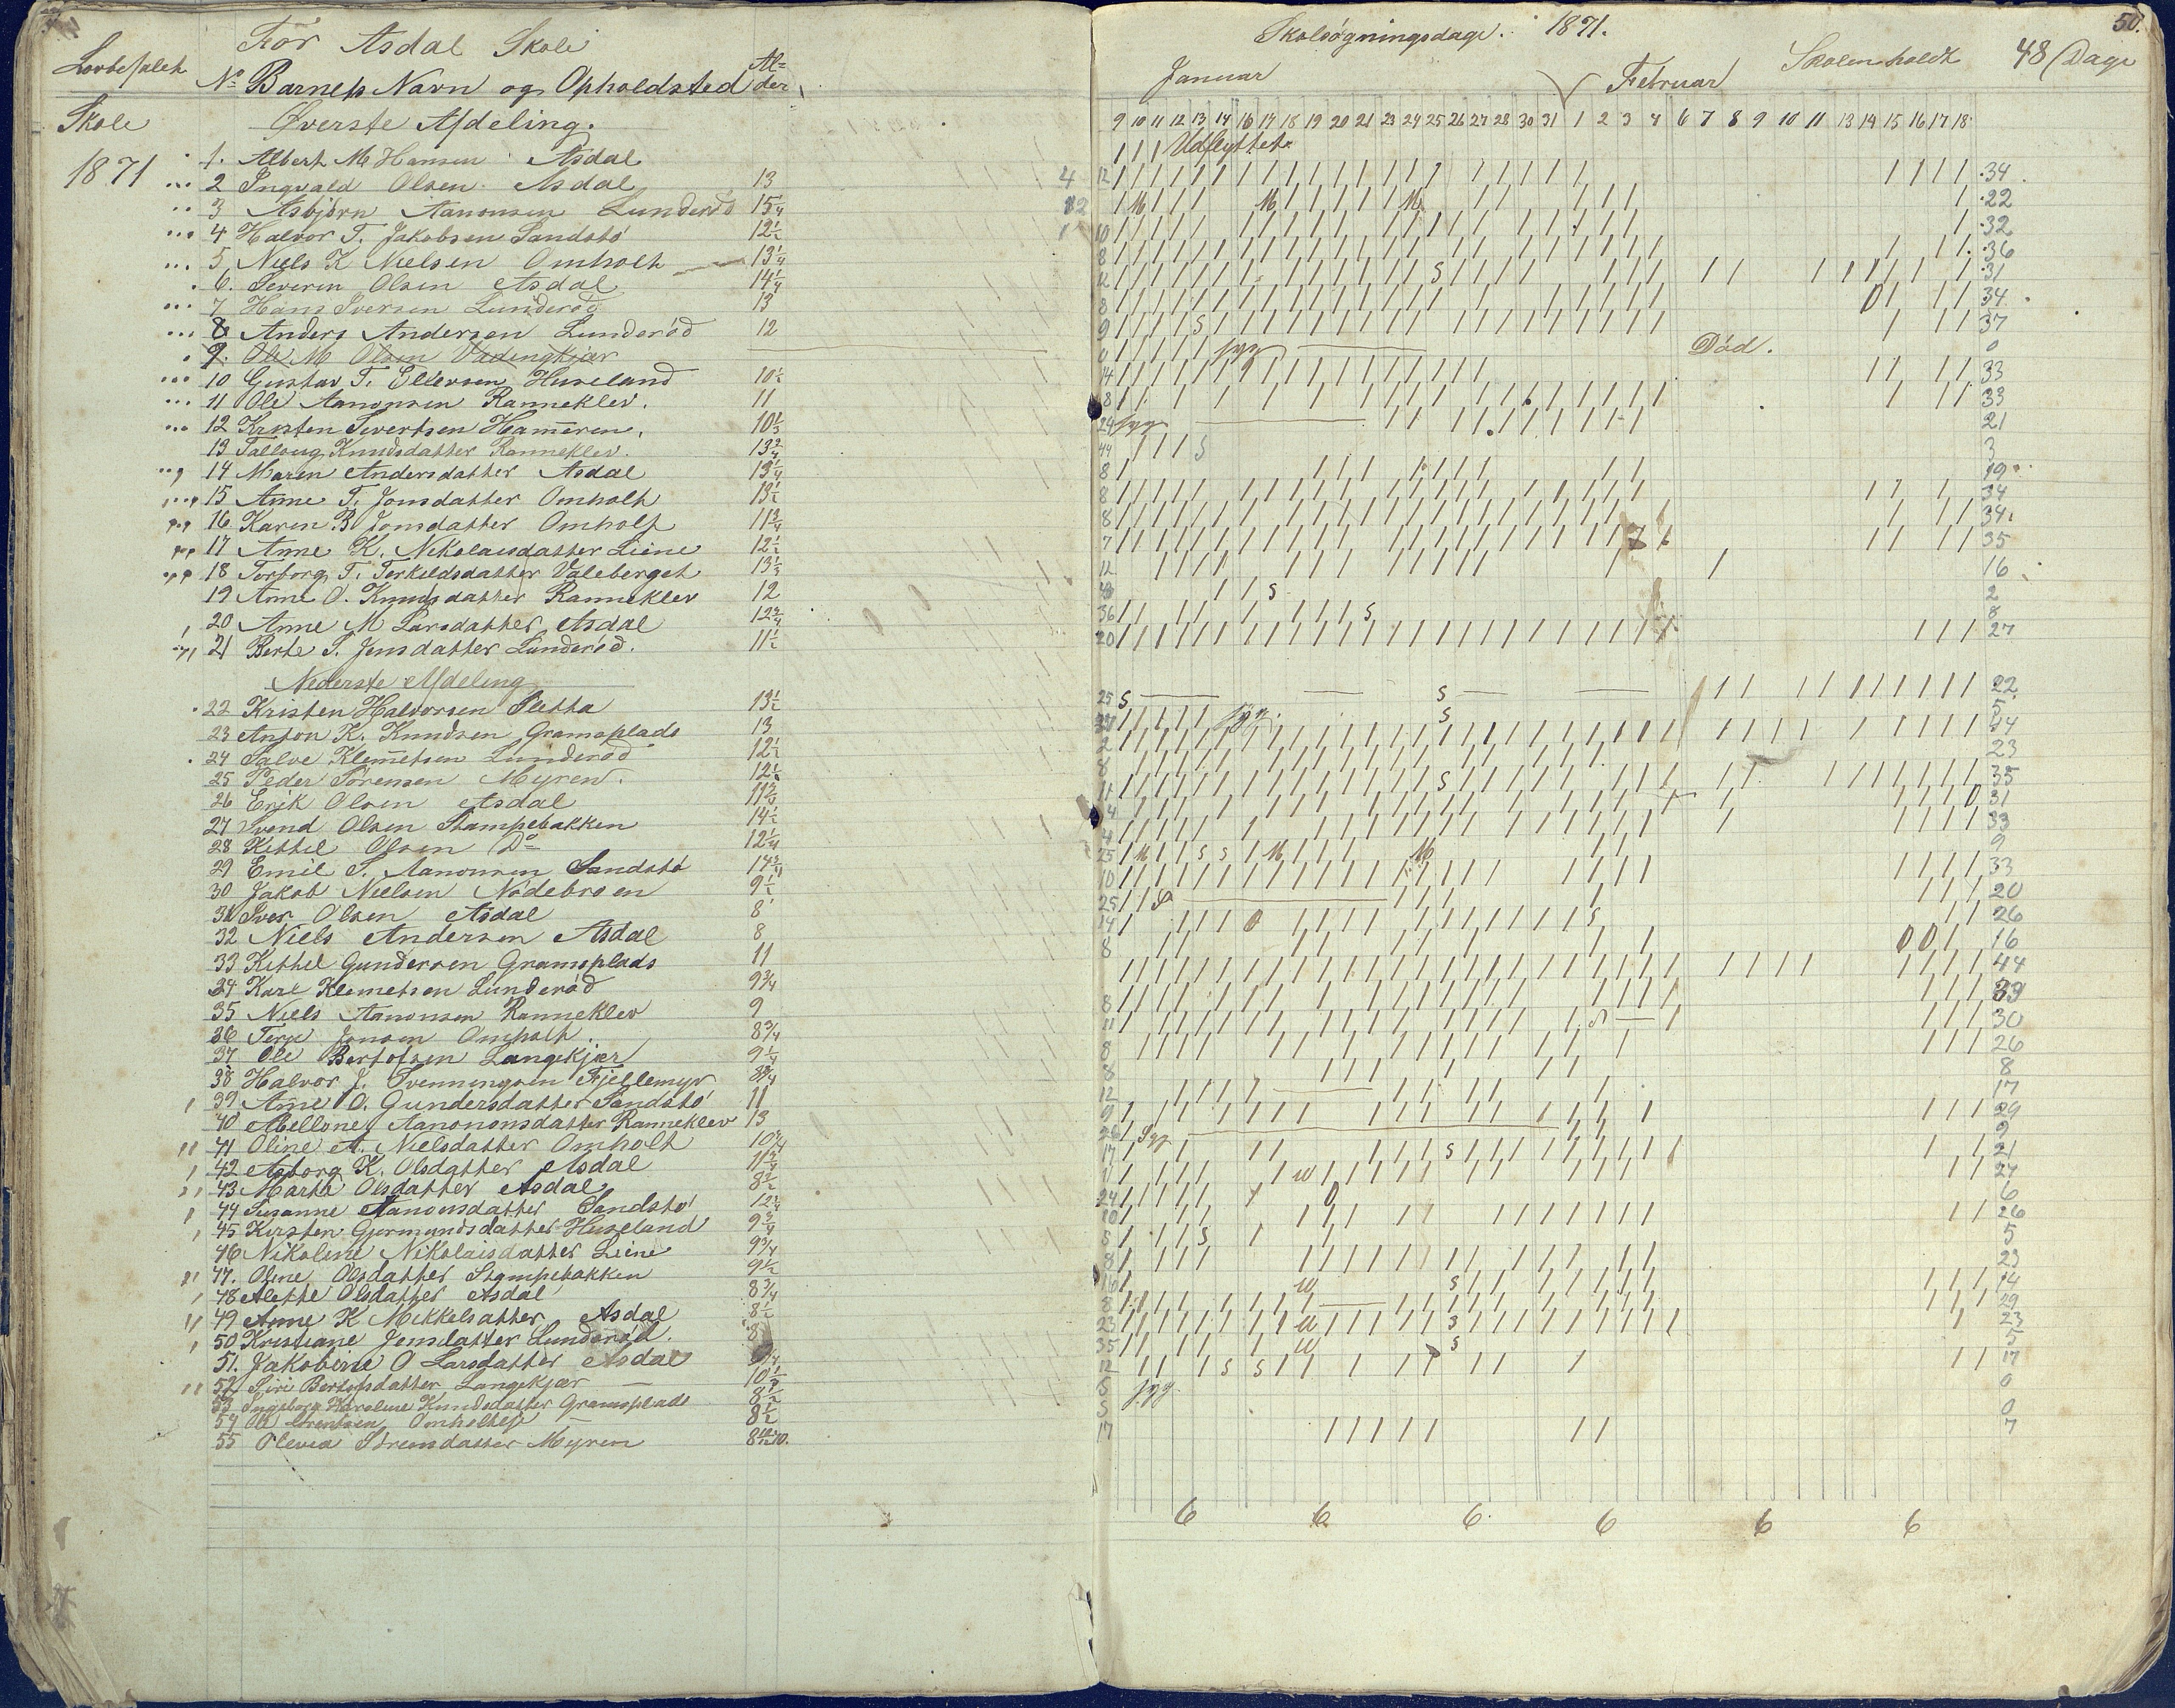 For Asdal Skole
Lovbefalet
No Barnets Navn og Opholdsted Al=der
Skole Øverste Afdeling.
1871
1. Albert M Hansen Asdal
2 Ingvald Olsen Asdal 13
3 Asbjörn Aanonsen Lunderöd 15/4
4 Halvor T. Jakobsen Sandstö 12½
5 Niels K Nielsen Omholt 13¼
6. Severin Olsen Asdal 14¼
7 Hans Iversen Lunderöd 13
8 Anders Andersen Lunderöd 12
9. Ole M Olsen
10 Gustav T. Ellevsen Huseland 10½
11 Ole Aanonsen Ranneklev. 11
12 Kristen Sivertsen Hameren. 10⅓
13 Talloug Knudsdatter Ranneklev. 13¾
14 Maren Andersdatter Asdal 13¼
15 Anne T. Jonsdatter Omholt 13½
16 Karen B Jonsdatter Omholt 11¾
17 Anne K. Nikolaisdatter Liene 12½
18 Torborg T. Terkildsdatter Valeberget 13⅓
19 Anne O. Knudsdatter Ranneklev 12
20 Anne M Larsdatter Asdal 12¾
21 Berte S. Jensdatter Lunderöd. 11½
Nederste Afdeling
22 Kristen Halvorsen Sletta 13½
23 Anton K. Knudsen Gramsplads 13
24 Salve Klemetsen Lunderöd 12½
25 Peder Sörensen Myren. 12½
26 Erik Olsen Asdal 11¾
27 Svend Olsen Stampebakken 14½
28 Kittil Olsen Do 12¼
29 Emil S. Aanonsen Sandstö 14¾
30 Jakob Nielsen Nödebroen 9½
31 Iver Olsen Asdal 8
32 Niels Andersen Asdal 8
33 Kittil Gundersen Gramsplads 11
34 Karl Klemetsen Lunderöd 9¾
35 Niels Aanonsen Ranneklev 9
36 Terje Jonsen Omholt. 8¾
37 Ole Bertofsen Langekjær 9¼
38 Halvor J. Svenningsen Fjellemyr 8¾
39 Anne O. Gundersdatter Sandstö 11
40 Mellone Aanononsdatter Ranneklev 13
41 Oline A. Nielsdatter Omholt 10¾
42 Asborg K. Olsdatter Asdal 11¾
43 Marthe Olsdatter Asdal 8½
44 Susanne Aanonsdatter Sandstö 12¾
45 Kirsten Gjermundsdatter Huseland 9¾
46 Nikoline Nikolaisdatter Liene 9¾
47. Oline Olsdatter Stampebakken 9½
48 Alette Olsdatter Asdal 8¾
49 Anne K Mikkelsatter Asdal 8½
50 Kristiane Jensdatter Lunderöd. 8
51. Jakobine O Larsdatter Asdal
52 Siri Bertofsdatter Langekjær 10½
53 Ingeborg Karoline Knudsdatter Gramsplads 8½
54 Ole 8½
55 Olevia Sörensdatter Myren
50.
Skolsögningsdage. 1871.
Januar Februar Skolen holdt 48 Dage
9 10 11 12 13 14 16 17 18 19 20 21 23 24 25 26 27 28 30 31 1 2 3 4 6 7 8 9 10 11 13 14 15 16 17 18
Udflyttet.
4 12 34
12 M M M 22
1 10 32
8 36
12 S 31
8 0 34
9 S 37
syg Död. 0
14 33
8 33
24 syg 21
44 S 3
8 19
8 34
8 34
7 35
12 16
S 2
36 S 8
20 27
25 S S 22
syg S 5
2 44
8 23
11 S 35
4 0 31
4 33
25 M S S M M 9
10 33
25 S 20
14 0 S 26
8 0 0 16
44
8 39
11 30
8 26
8 8
12 17
9 29
26 Syg 2
17 S 21
11 27
24 0 6
10 26
5 S 5
8 23
16 S 14
8 29
23 23
35 S 5
12 S S 17
5 syg 0
5 0
17 7
6 6 6 6 6 6